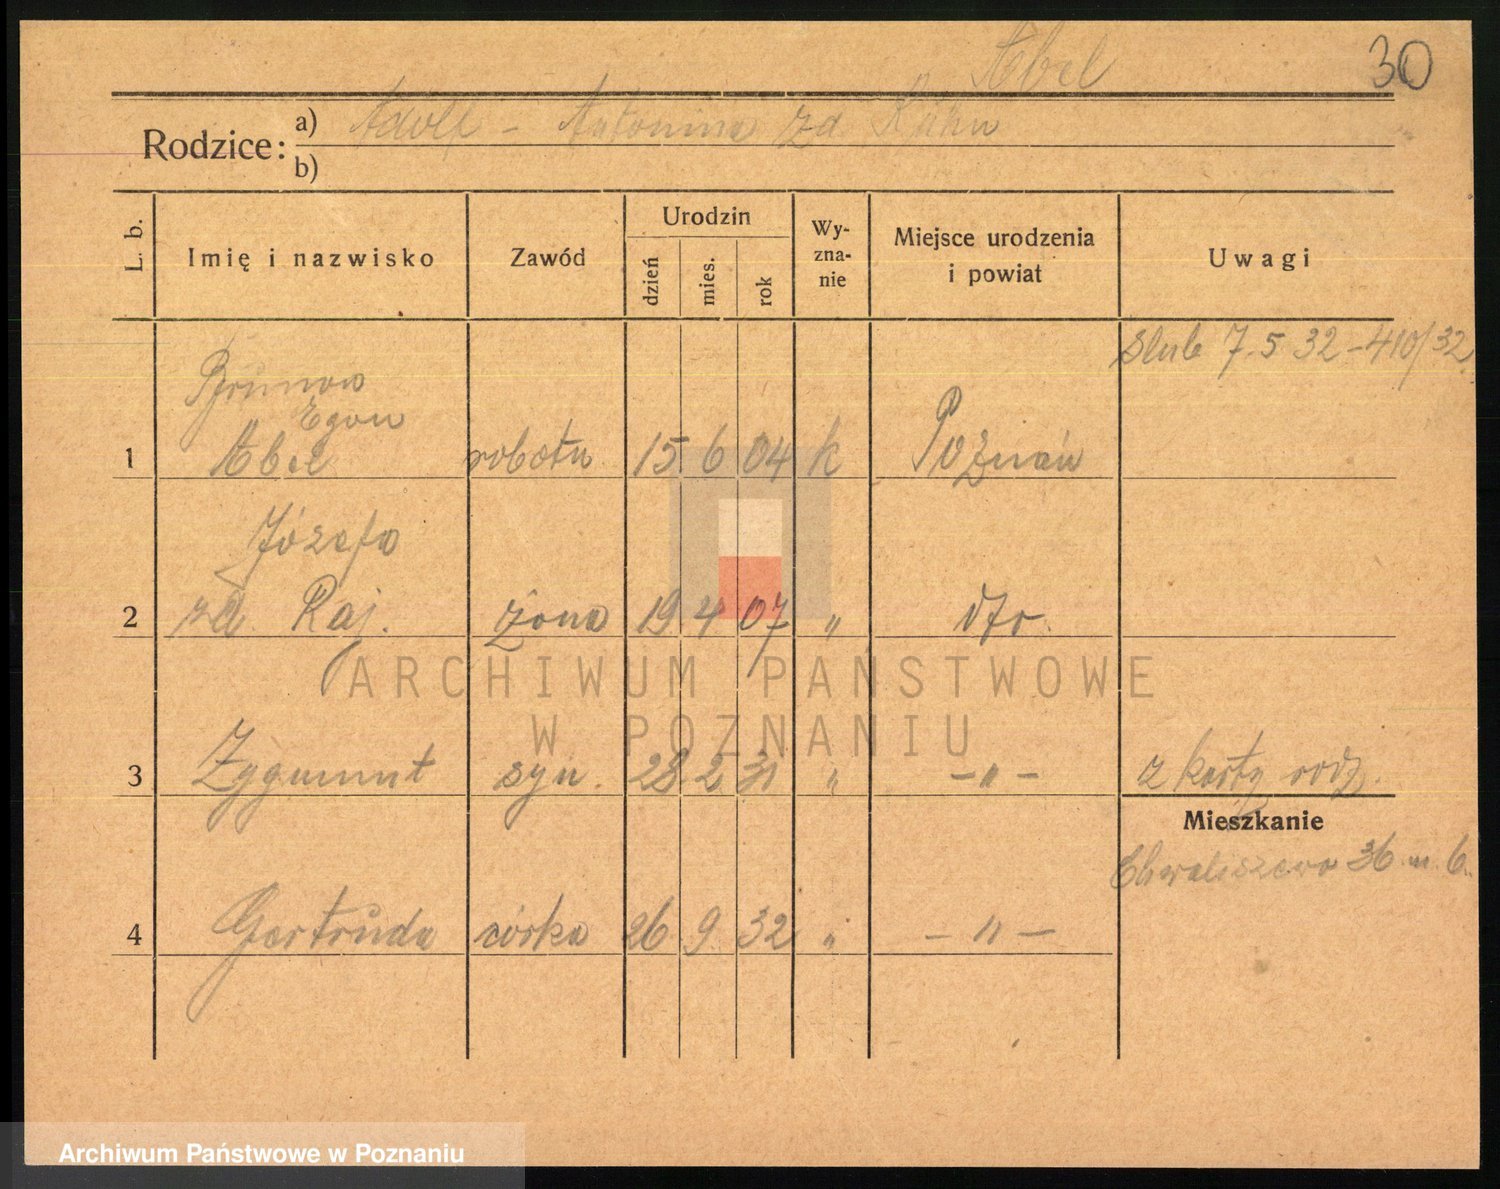 Abel
30
Rodzice:
a) Adolf - Antonina zd Kühn
b)
L. b.
Imię i nazwisko
Zawód
Urodzin
dzień
mies.
rok
Wy-
zna-
nie
Miejsce urodzenia
i powiat
Uwagi
Ślub 7.5 32 - 410/32.
Brunow
Egon
1 Abel robotn 15 6 04 k Poznań
Józefa
2 zd. Raj. żona 19 4 07 " dto.
3 Zygmunt syn. 28 2 31 " - " - z karty rodz.
Mieszkanie
Chwaliszewo 36 m. 6.
4 Gertruda córka 26 9 32 " - " -
ARCHIWUM PAŃSTWOWE
W POZNANIU
Archiwum Państwowe w Poznaniu